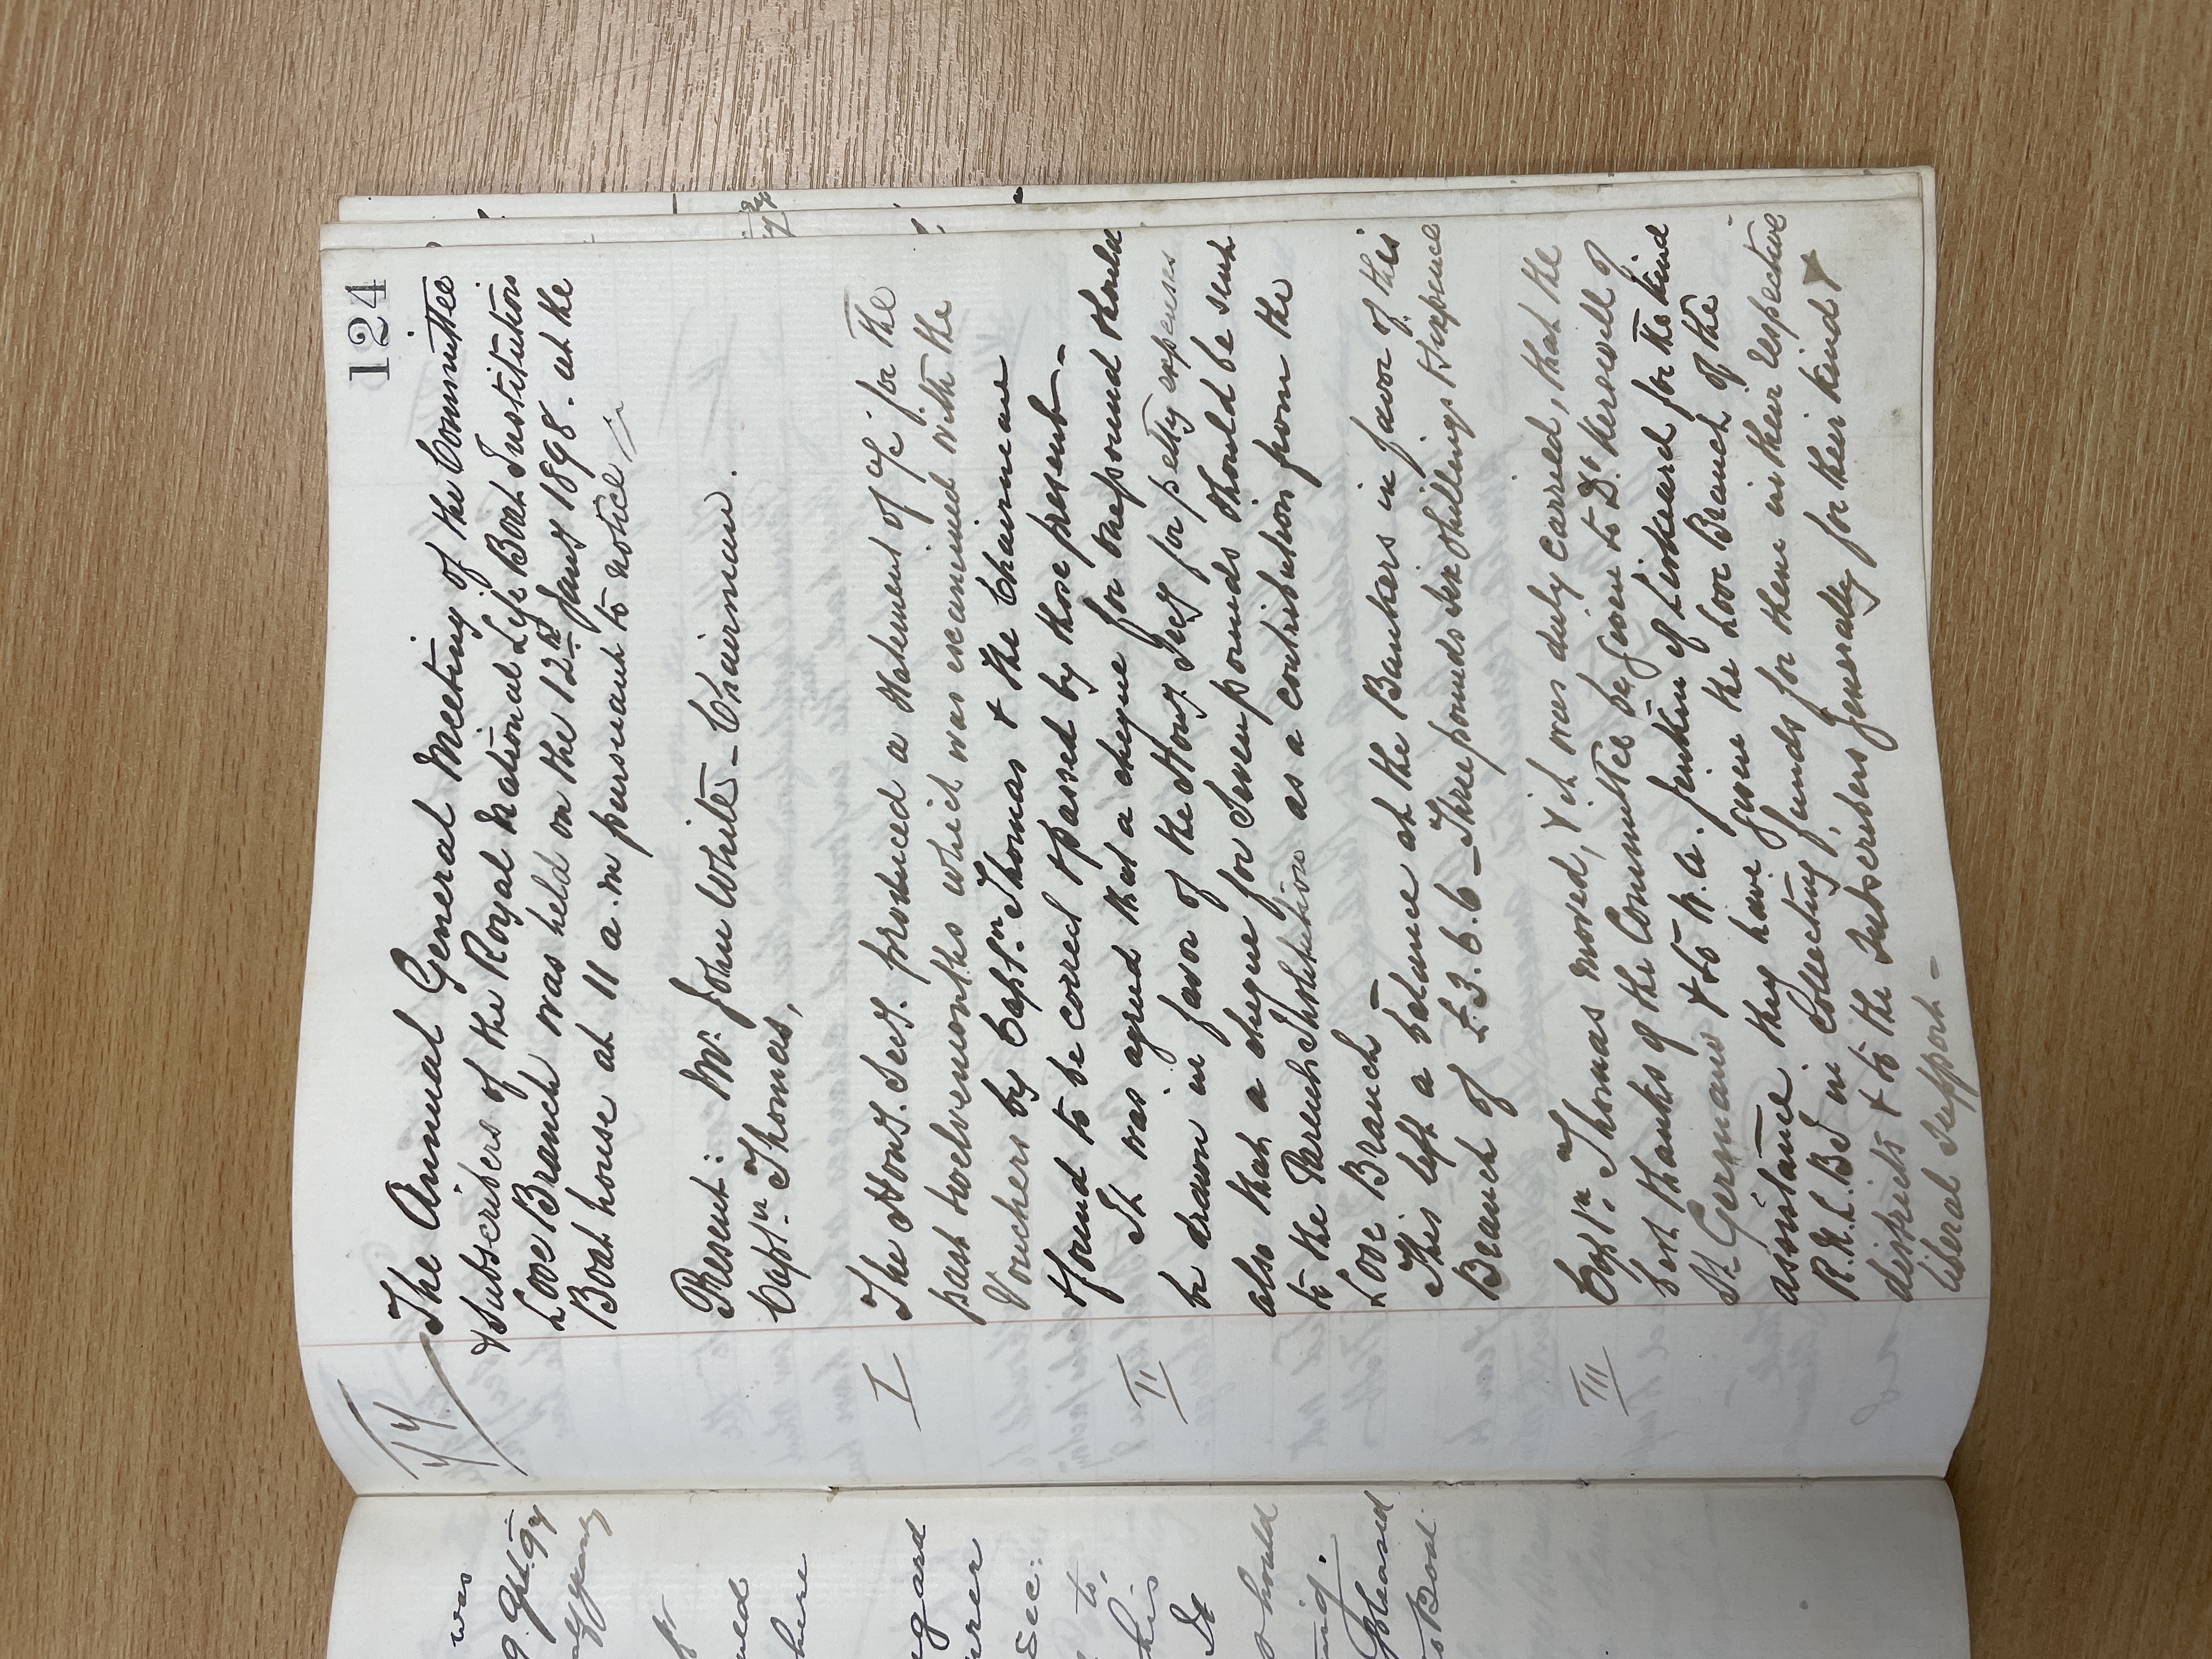 124
77
The Annual General Meeting of the Committee
& Subscribers of the Royal National Life Boat Institution
Looe Branch was held on the 12th Jany 1898. at the
Boat house at 11 a.m pursuant to notice
Present: Mr. John White - Chairman.
Captn. Thomas,
I
The Hony. Secy. produced a statement of a/c. for the
past twelvemonths which was examined with the
Vouchers by Captn. Thomas & the Chairman
& found to be correct & passed by those present -
II
It was agreed that a cheque for one pound should
be drawn in favor of the Hony. Secy for petty expenses
also that a cheque for Seven pounds should be sent
to the Parent Institution as a contribution from the
Looe Branch -
This left a balance at the Bankers in favor of this
Branch of £3.6.6 - Three pounds six shillings & sixpence
III
Captn. Thomas moved, & it was duly carried, that the
best thanks of the Committee be given to Dr. Kerswill of
St Germans & to W. C. Jenkin of Liskeard for the kind
assistance they have given the Looe Branch of the
R.N.L.B.I in collecting funds for them in their respective
districts & to the Subscribers generally for their kind &
liberal support -
was
would
here
regard
Sec:
to,
his
It
should
pleased
to Boat